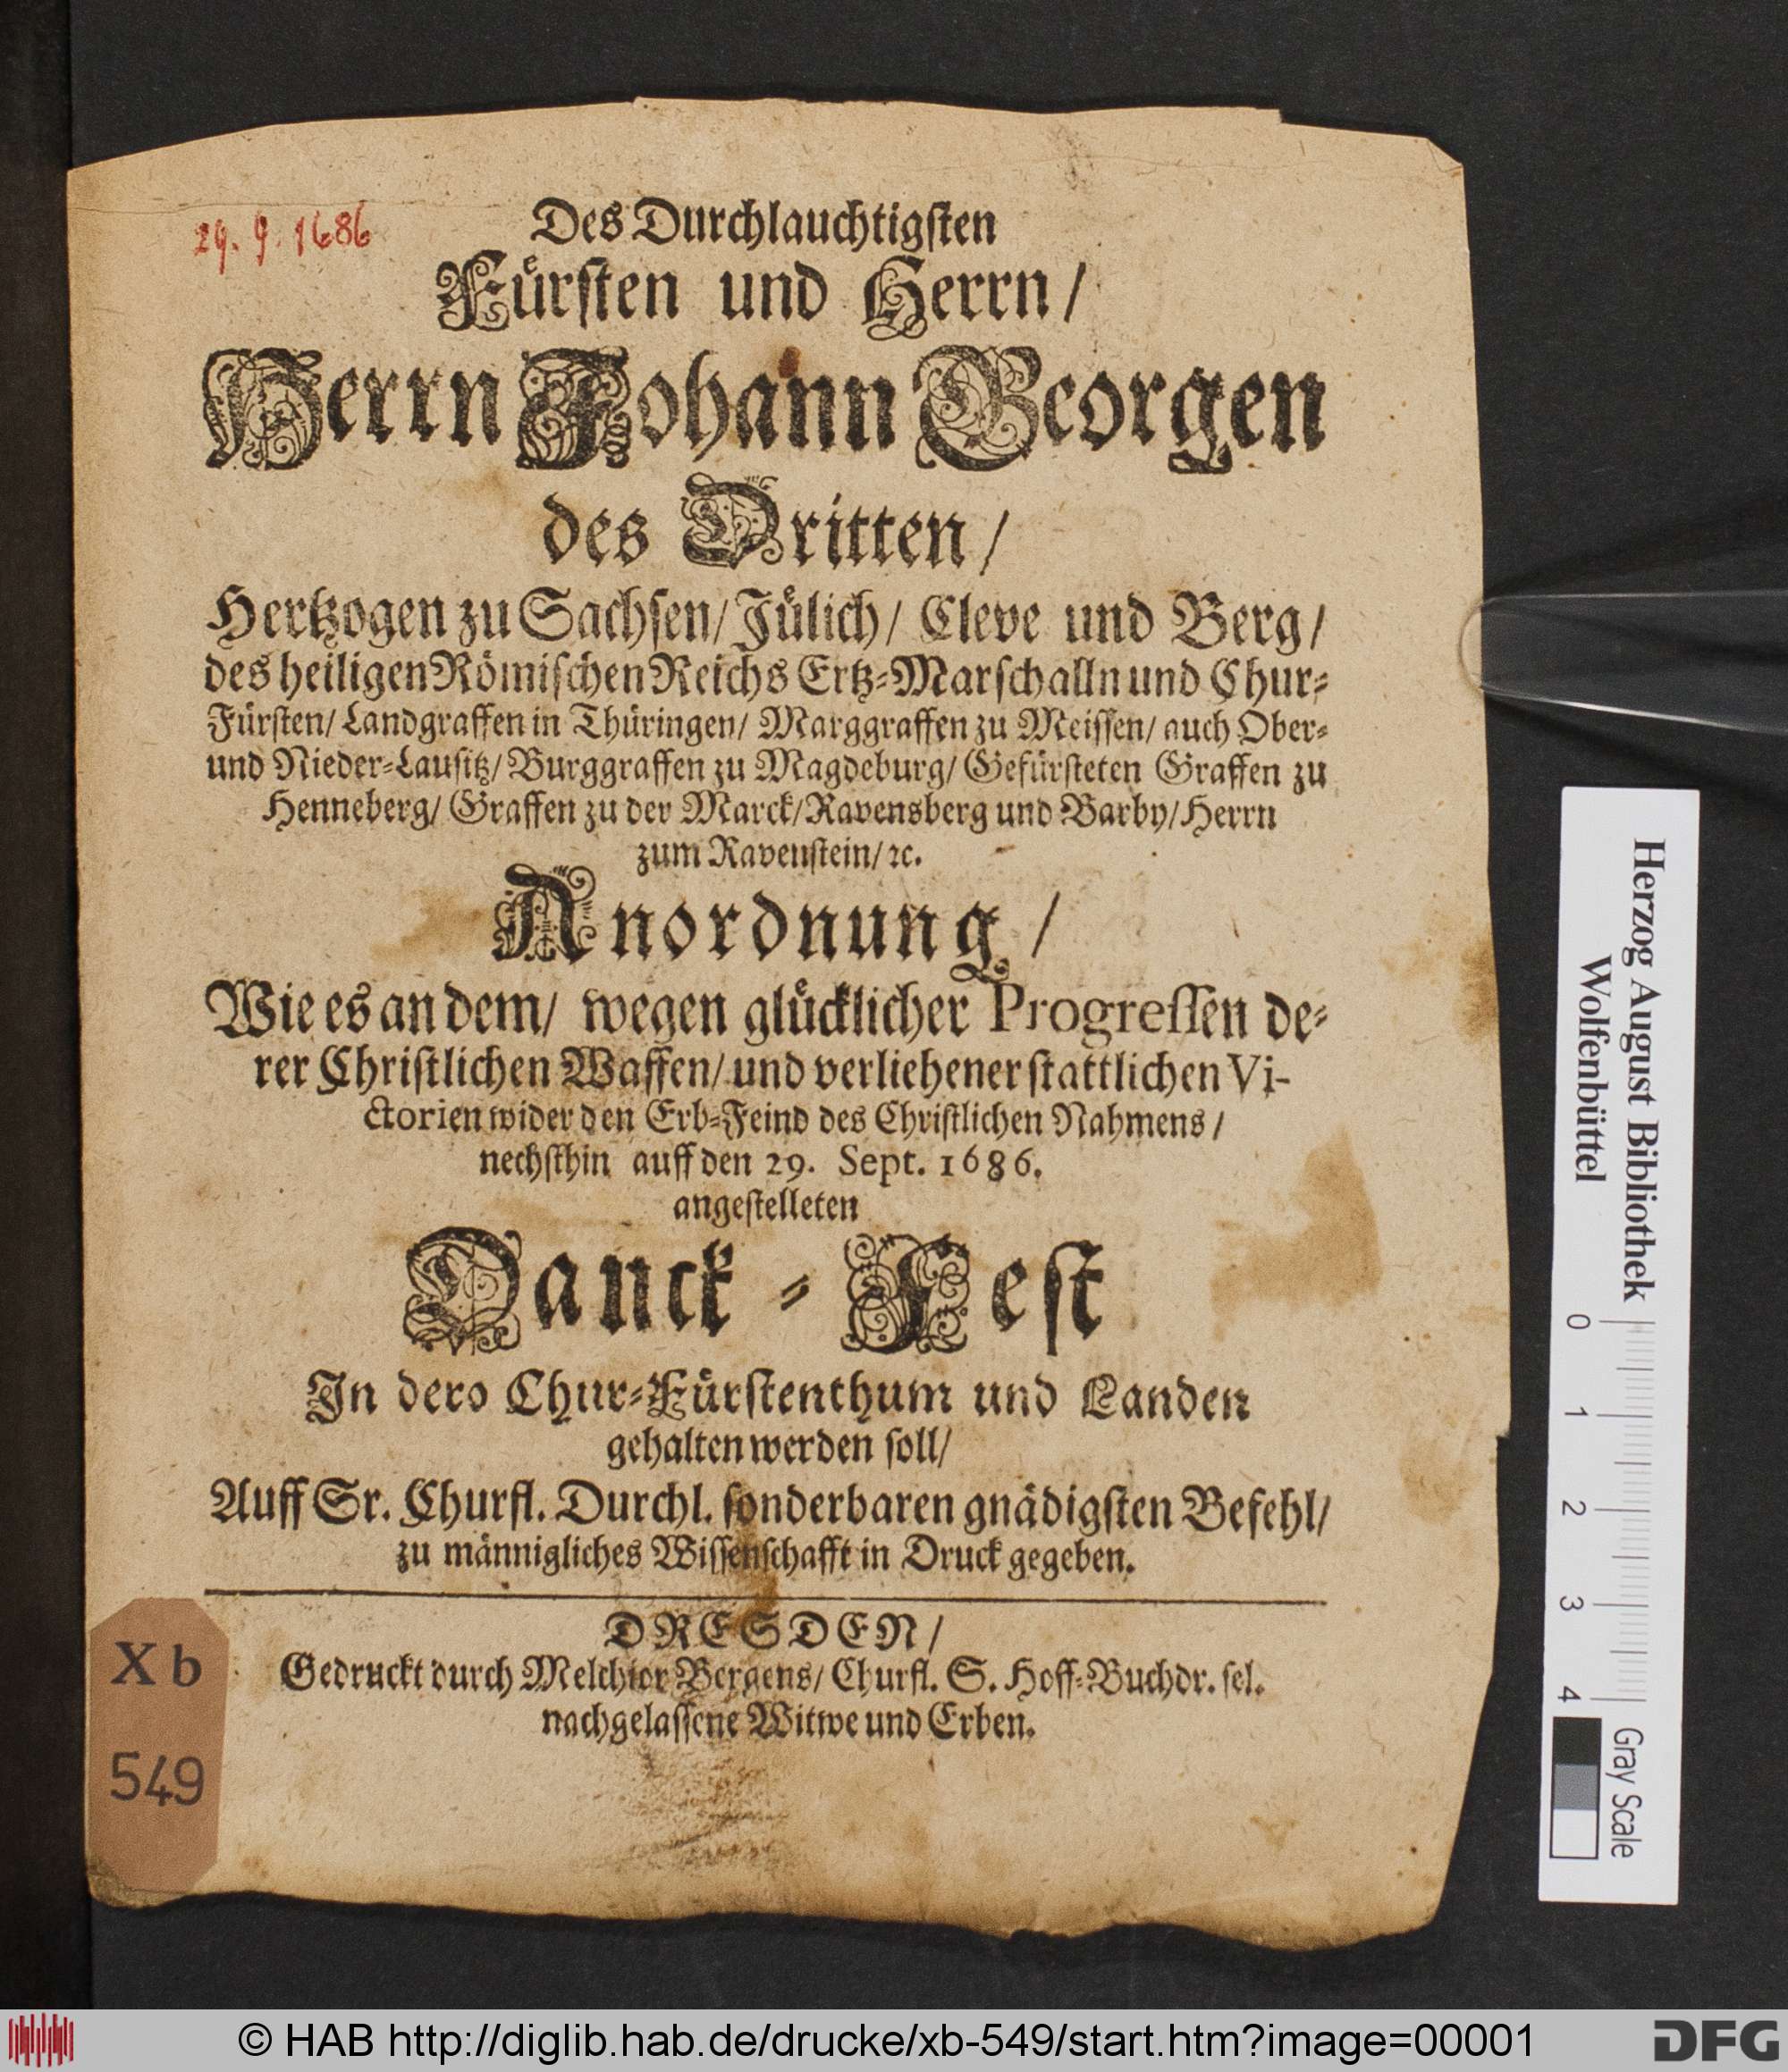 29. 9. 1686
Des Durchlauchtigsten
Fürsten und Herrn/
Herrn Johann Georgen
des Dritten/
Hertzogen zu Sachsen/ Jülich/ Cleve und Berg/
des heiligen Römischen Reichs Ertz-Marschalln und Chur-
Fürsten/ Landgraffen in Thüringen/ Marggraffen zu Meissen/ auch Ober-
und Nieder-Lausitz/ Burggraffen zu Magdeburg/ Gefürsteten Graffen zu
Henneberg/ Graffen zu der Marck/ Ravensberg und Barby/ Herrn
zum Ravenstein/ ꝛc.
Anordnung/
Wie es an dem/ wegen glücklicher Progressen de-
rer Christlichen Waffen/ und verliehener stattlichen Vi-
ctorien wider den Erb-Feind des Christlichen Nahmens/
nechsthin auff den 29. Sept. 1686.
angestelleten
Danck-Fest
In dero Chur-Fürstenthum und Landen
gehalten werden soll/
Auff Sr. Churfl. Durchl. sonderbaren gnädigsten Befehl/
zu männigliches Wissenschafft in Druck gegeben.
DRESDEN/
Gedruckt durch Melchior Bergens/ Churfl. S. Hoff-Buchdr. sel.
nachgelassene Witwe und Erben.
Xb
549
Herzog August Bibliothek
Wolfenbüttel
0 1 2 3 4
Gray Scale
© HAB http://diglib.hab.de/drucke/xb-549/start.htm?image=00001
DFG